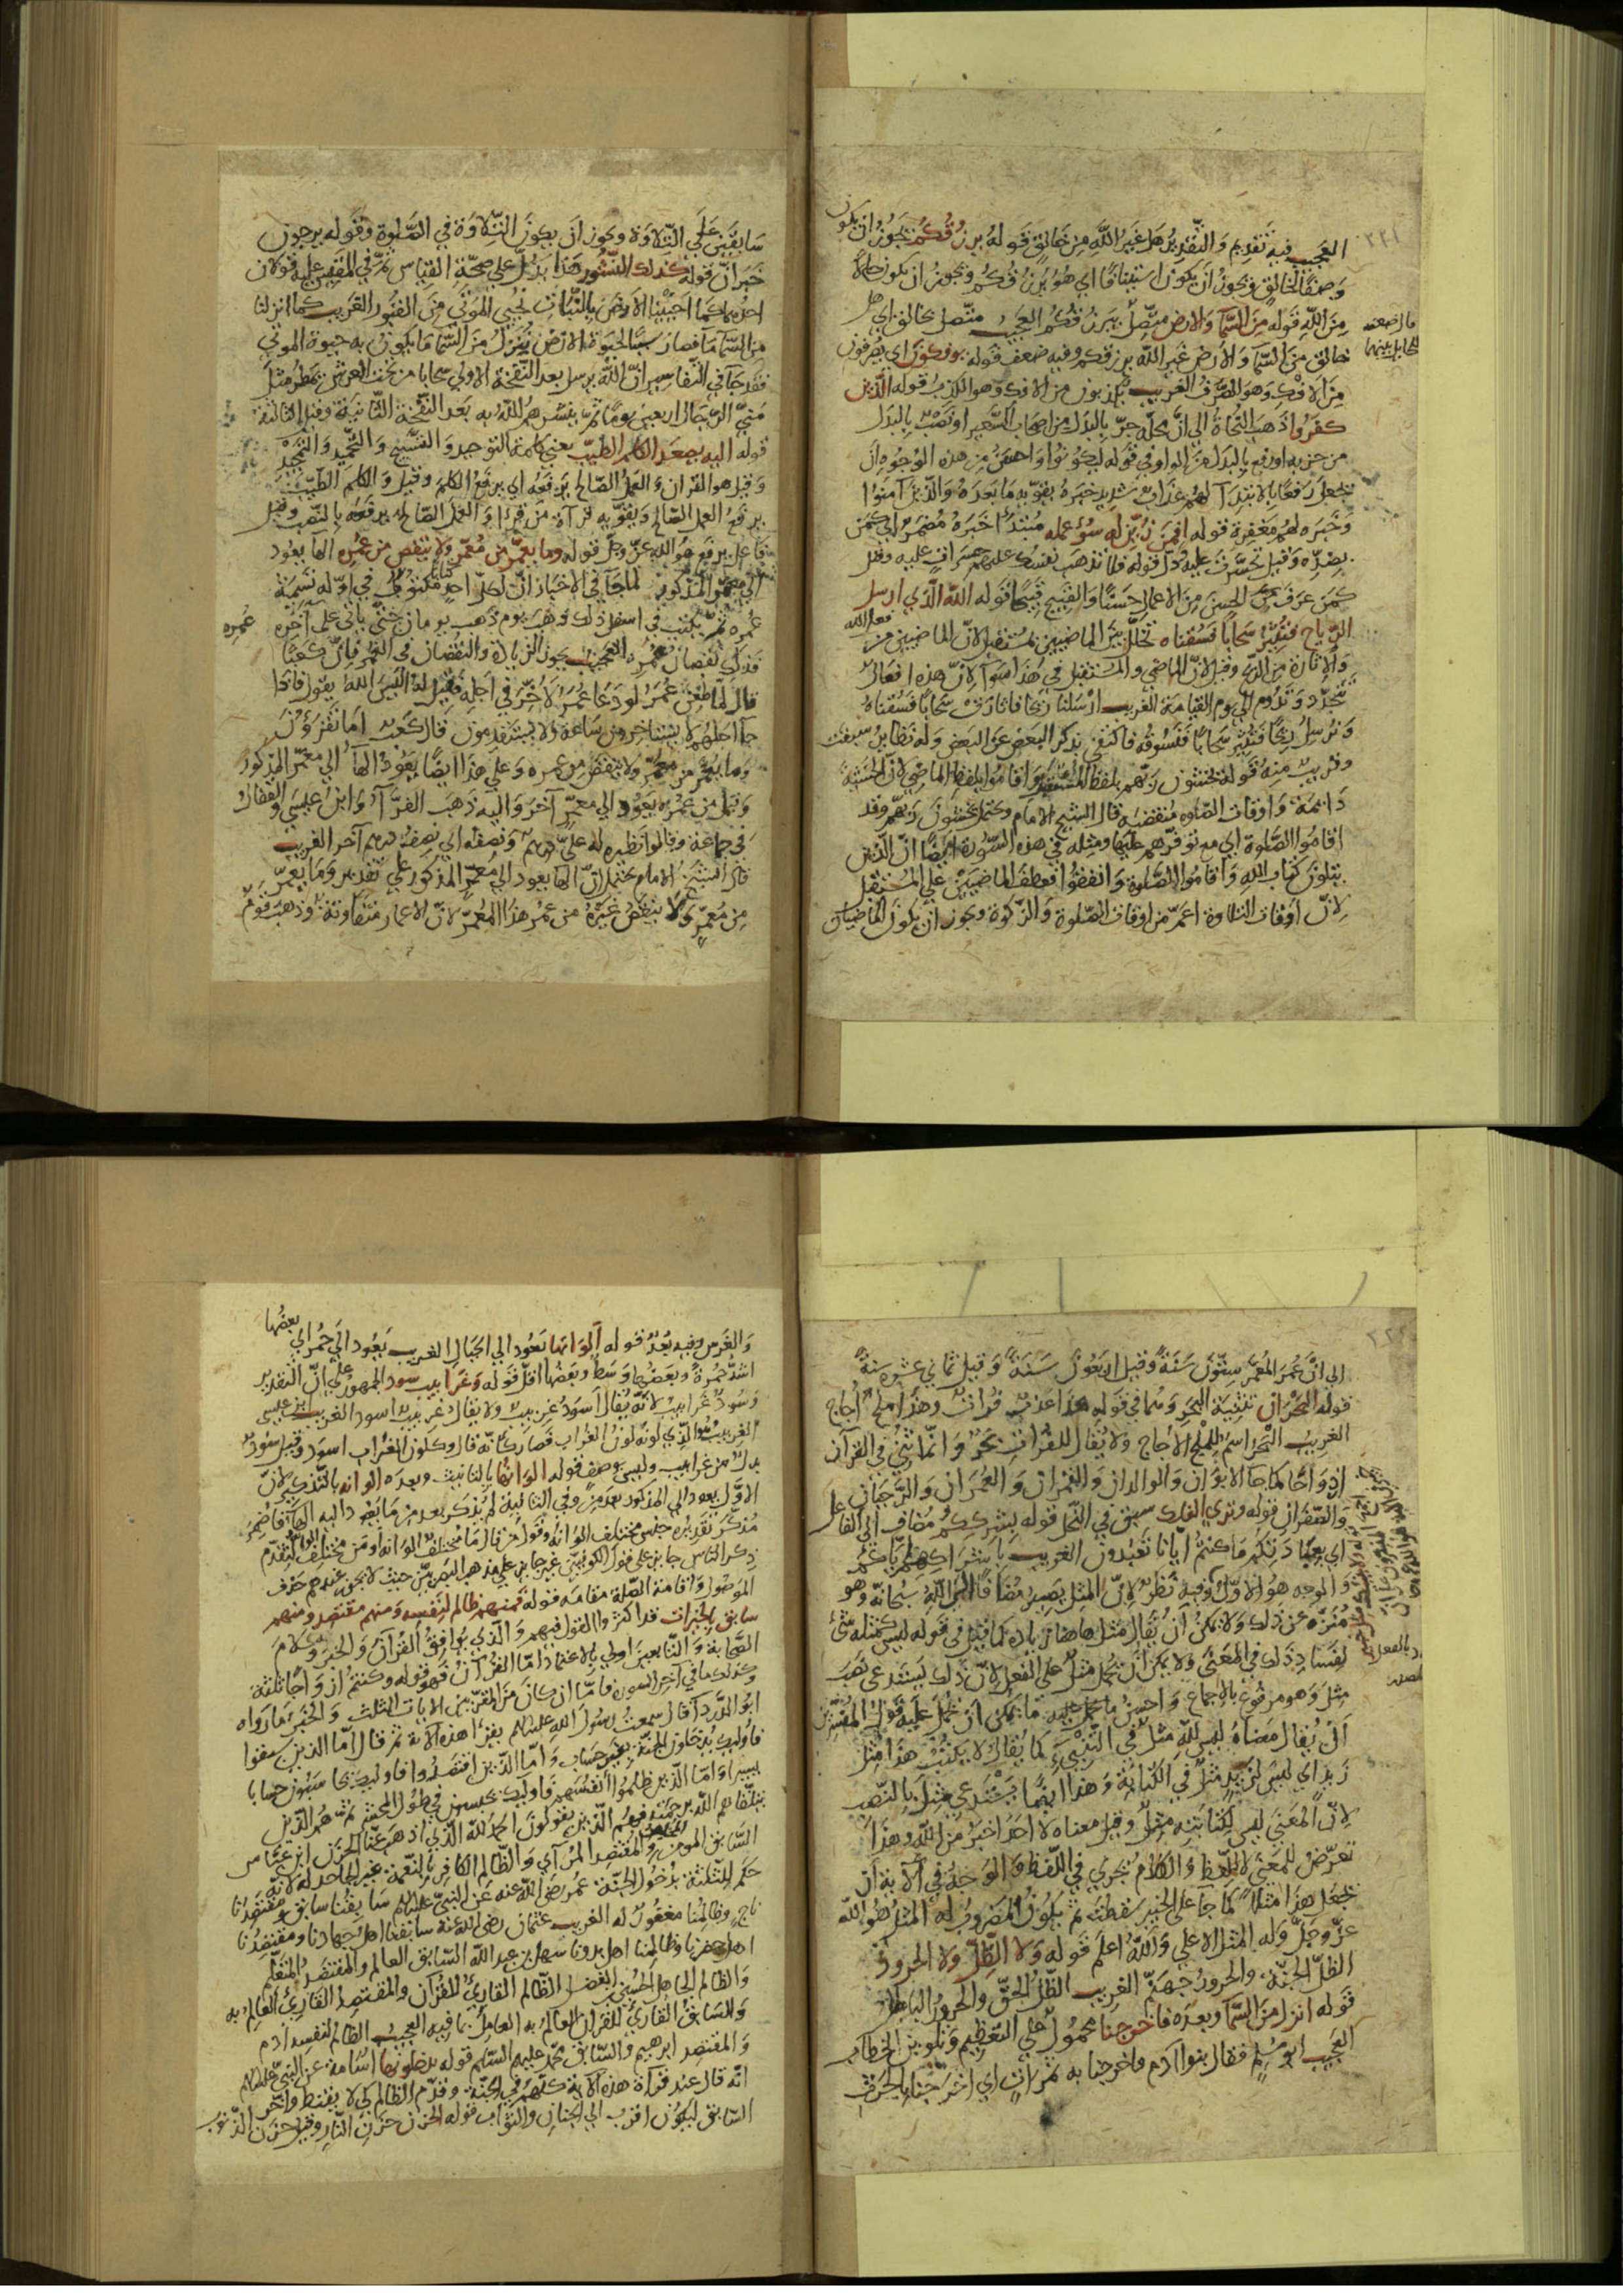 العجيب فيه تقديم والتقدير هل غير الله من خالق قوله يرزقكم يجوز ان يكون
وصفا لخالق ويجوز ان يكون استينافا اي هو يرزقكم ويجوز ان يكون حالا
من الله قوله من السما والارض متصل بيرزقكم العجيب متصل بخالق اي هل
خالق من السما والارض غير الله يرزقكم وفيه ضعف قوله يوفكون اي يصرفون
من الافك وهو الصرف الغريب يكذبون من الافك وهو الكذب قوله الذين
كفروا ذهب النحاة الى ان محله جر بالبدل من اصحاب السعير او نصب بالبدل
من حزبه او رفع بالبدل من الواو في قوله ليكونوا واحسن من هذه الوجوه ان
يجعل رفعا بالابتدا لهم عذاب شديد خبره يقويه ما بعده والذين آمنوا
وخبره لهم مغفرة قوله افمن زين له سوء عمله مبتدأ خبره مضمر اي كمن
يضره وقيل تحسرت عليه دل قوله فلا تذهب نفسك عليهم حسرات عليه وقيل
كمن عرف الحسن من الاعمال حسنا والقبيح قبيحا قوله الله الذي ارسل
الرياح فتثير سحابا فسقناه تخلل بين الماضيين مستقبل لان الماضيين من فعل الله
والاثارة من الريح وقيل لان الماضي والمستقبل في هذا سوا لان هذه افعال
تتجدد وتدوم الى يوم القيامة الغريب ارسلنا ريحا فاثارت سحابا فسقناه
ونرسل ريحا فتثير سحابا فنسوقه فاكتفى بذكر البعض عن البعض وله نظاير سبقت
وقريب منه قوله يخشون ربهم بلفظ المستقبل واقاموا بلفظ الماضي لان الخشية
دائمة واوقات الصلوة منقضية قال الشيخ الامام ويحتمل يخشون ربهم وقد
اقاموا الصلوة اي مع توفرهم عليها ومثله في هذه السورة ايضا ان الذين
يتلون كتاب الله واقاموا الصلوة وانفقوا فعطف الماضيين على المستقبل
لان اوقات التلاوة اعم من اوقات الصلوة والزكوة ويجوز ان يكون الماضيان
سابقين على التلاوة ويجوز ان يكون التلاوة في الصلوة وقوله يرجون
خبر ان قوله كذلك النشور هذا يدل على صحة القياس ثم في المقيس عليه قولان
احدهما كما احيينا الارض بالنبات نحيي الموتى من القبور الغريب كما انزلنا
من السما ما فصار سببا لحيوة الارض ننزل من السما ما يكون به حيوة الموتى
فقد جا في التفاسير ان الله يرسل بعد النفخة الاولى سحابا من تحت العرش يمطر مثل
مني الرجال اربعين يوما ثم ينشرهم الله به بعد النفخة الثانية وقيل الثالثة
قوله اليه يصعد الكلم الطيب يعني كلمة التوحيد والتسبيح والتحميد والتمجيد
وقيل هو القران والعمل الصالح يرفعه اي يرفع الكلم وقيل والكلم الطيب
يرفع العمل الصالح ويقويه قرآة من قرأ والعمل الصالح يرفعه بالنصب وقيل
فاعل يرفع هو الله عز وجل قوله وما يعمر من معمر ولا ينقص من عمره الها يعود
الى معمر المذكور لما جا في الاخبار ان لكل احد كتابا مكتوب في اوله تسمية
عمره ثم يكتب في اسفل ذلك ذهب يوم ذهب يومان حتى ياتي على آخره
عمره
فذلك نقصان عمره العجيب يجوز الزيادة والنقصان في العمر فان كعبا
قال لما طعن عمر لو دعا عمر لأخر في اجله فقيل له اليس الله يقول فاذا
جا اجلهم لا يستاخرون ساعة ولا يستقدمون قال كعب اما تقرؤن
وما يعمر من معمر ولا ينقص من عمره وعلى هذا ايضا يعود الها الى معمر المذكور
وقيل من عمره يعود الى معمر آخر واليه ذهب الفرآ وابن عيسى والقفال
في جماعة وقالوا نظيره له علي درهم ونصفه اي نصف درهم آخر الغريب
قال الشيخ الامام يحتمل ان الها يعود الى معمر المذكور على تقدير وما يعمر
من معمر ولا ينقص غيره من عمر هذا المعمر لان الاعمار متفاوتة وذهب قوم
الى ان عمر المعمر ستون سنة وقيل اربعون سنة وقيل ثماني عشرة سنة
قوله البحران تثنية البحر وسما في قوله هذا عذب فرات وهذا ملح اجاج
الغريب البحر اسم للملح الاجاج ولا يقال للفرات بحر وانما ثني في القرآن
ازدواجا كما جا الابوان والوالدان والقمران والعمران والزهدمان
والصفران قوله وترى الفلك سبق في النحل قوله بشرككم مضاف الى الفاعل
اي بعبادتكم ما كنتم ايانا تعبدون الغريب باشراكهم اياكم
والوجه هو الاول وفيه نظر لان المثل يصير مضافا الى الله سبحانه وهو
منزه عن ذلك ولا يمكن ان يقال مثل هاهنا زيادة كما قيل في قوله ليس كمثله شئ
لفساد ذلك في المعنى ولا يمكن ان يحمل مثل على الفعل لان ذلك يستدعي نصب
مثل وهو مرفوع بالاجماع واحسن ما يحمل عليه ما يمكن ان يحمل عليه قول المفسرين
ان يقال معناه ليس لله مثل في التنبيء كما يقال لا يكتب هذا مثل
زيد اي ليس لزيد مثل في الكتابة وهذا ايضا يستدعي مثل بالنصب
لان المعنى ليس لكتابته مثل وقيل معناه لا احد اخبر من الله وهذا
تعرض للمعنى لا للفظ والكلام يجري في اللفظ والوجه في الآية ان
يجعل هذا مثلا كما جا على الخبير سقطت ثم يكون المضروب له المثل هو الله
عز وجل وله المثل الاعلى والله اعلم قوله ولا الظل ولا الحرور
الظل الجنة والحرور جهنم الغريب الظل الحق والحرور الباطل
قوله انزل من السما وبعده فاخرجنا محمول على التعظيم وتلوين الخطاب
العجيب ابو مسلم فقال بنوا آدم فاخرجنا به ثمرات اي اخرجنا بالحرث
والغرس وفيه بعد قوله الوانها تعود الى الجبال الغريب يعود الى حمر اي بعضها
اشد حمرة وبعضها وسط وبعضها اقل قوله وغرابيب سود الجمهور على ان التقدير
وسود غرابيب لانه يقال اسود غربيب ولا يقال غربيب اسود الغريب ابن عيسى
الغربيب هو الذي لونه لون الغراب فصار كانه قال وكلون الغراب اسود وقيل سود
بدل من غرابيب وليس بوصف قوله الوانها بالتانيث وبعده الوانه بالتذكير لان
الاول يعود الى المذكور بعد من وفي الثانية لم يذكر بعد من ما يعود اليه الها فاضمر
مذكر تقديره جنس مختلف الوانه
الموصول واقامة الصلة مقامه قوله فمنهم ظالم لنفسه ومنهم مقتصد ومنهم
سابق بالخيرات قد اكثروا القول فيهم والذي يوافق القرآن والخبر وكلام
الصحابة والتابعين اولى بالاعتماد اما القرآن فهو قوله وكنتم ازواجا ثلثة
وكذلك ما في آخر السورة فاما ان كان من المقربين الايات الثلث والخبر ما رواه
ابو الدردآ قال سمعت رسول الله عليه السلام يقرأ هذه الآية ثم قال اما الذين سبقوا
فاوليك يدخلون الجنة بغير حساب واما الذين اقتصدوا فاوليك يحاسبون حسابا
يسيرا واما الذين ظلموا انفسهم فاوليك يحبسون في طول المحشر ثم هم الذين
يتلقاهم الله برحمته فهم الذين يقولون الحمد لله الذي اذهب عنا الحزن ابن عباس
السابق المومن المخلص والمقتصد المرآي والظالم الكافر بالنعمة غير الجاحد له لانه
حكم للثلثة بدخول الجنة عمر رضي الله عنه عن النبي عليه السلام سابقنا سابق ومقتصدنا
ناج وظالمنا مغفور له الغريب عثمان رضي الله عنه سابقنا اهل جهادنا ومقتصدنا
اهل حضرنا وظالمنا اهل بدونا سهل بن عبد الله السابق العالم والمقتصد المتعلم
والظالم الجاهل الظالم القارئ للقرآن والمقتصد القارئ العالم به
والسابق القارئ للقرآن العالم به العامل بما فيه العجيب الظالم لنفسه آدم
والمقتصد ابرهيم والسابق محمد عليهم السلم قوله يدخلونها اسامة عن النبي عليه السلام
انه قال عند قرآة هذه الآية كلهم في الجنة وقدم الظالم كي لا يقنط واخر
السابق ليكون اقرب الى الجنان والثواب قوله الحزن حزن النار وقيل حزن الذنوب